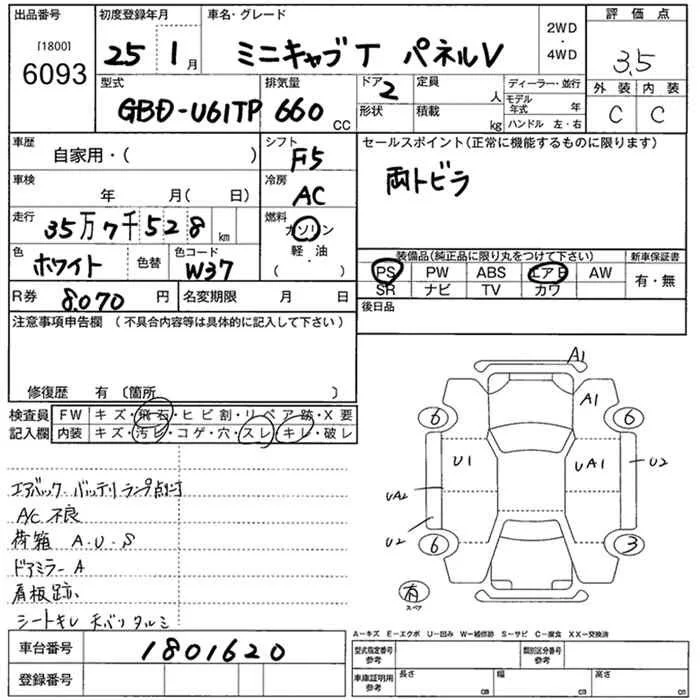 出品番号 初度登録年月 車名・グレード 2WD・4WD 評価点
[1800] 6093 25 1月 ミニキャブT パネルV 3.5
型式 排気量 ドア 2 定員 人 ディーラー・並行 外装 内装
GBD-U61TP 660cc 形状 積載 kg モデル年式 年 C C
ハンドル 左・右
車歴 自家用・( ) シフト F5 セールスポイント(正常に機能するものに限ります)
車検 年 月( 日) 冷房 AC 両トビラ
走行 35万7千528km 燃料 ガソリン
軽・油
( )
色 ホワイト 色替 色コード W37
装備品(純正品に限り丸をつけて下さい) 新車保証書
PS PW ABS エアB AW 有・無
SR ナビ TV カワ
R券 8.070円 名変期限 月 日 後日品
注意事項申告欄(不具合内容等は具体的に記入して下さい)
修復歴 有(箇所 )
検査員 FW キズ・飛石・ヒビ割・リペア跡・X要
記入欄 内装 キズ・汚レ・コゲ・穴・スレ・キレ・破レ
エアバック バッテリランプ点灯
A/C 不良
荷箱 A・U・S
ドアミラーA
看板跡
シートキレ 天バリタルミ
A1
A1
6 6
U1 UA1 U2
UA2
U2
6 3
有
スペア
A-キズ E-エクボ U-凹み W-補修跡 S-サビ C-腐食 XX-交換済
車台番号 1801620
型式指定番号 参考 類別区分番号 参考
登録番号
車庫証明用 参考 長さ cm 幅 cm 高さ cm